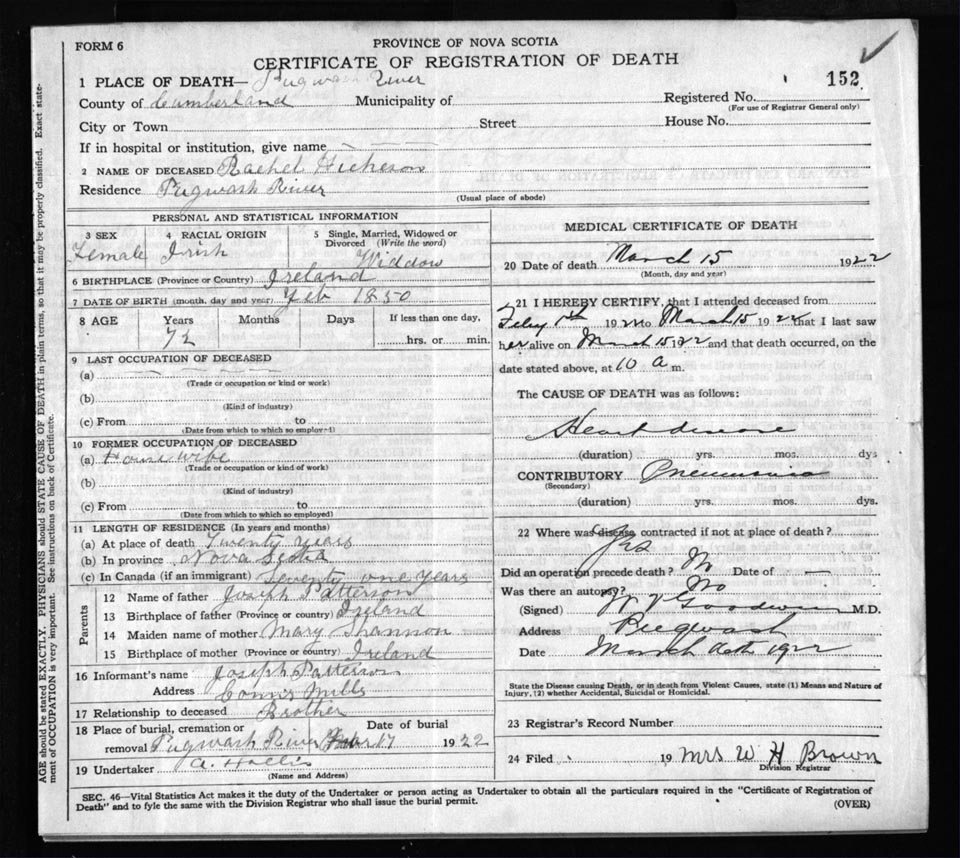 FORM 6
PROVINCE OF NOVA SCOTIA
CERTIFICATE OF REGISTRATION OF DEATH
152
1 PLACE OF DEATH— Pugwash River
County of Cumberland Municipality of Registered No.
(For use of Registrar General only)
City or Town Street House No.
If in hospital or institution, give name
2 NAME OF DECEASED Rachel Hickson
Residence Pugwash River
(Usual place of abode)
PERSONAL AND STATISTICAL INFORMATION
3 SEX 4 RACIAL ORIGIN 5 Single, Married, Widowed or Divorced (Write the word)
Female Irish Widdow
6 BIRTHPLACE (Province or Country) Ireland
7 DATE OF BIRTH (month, day and year) Feb 1850
8 AGE Years Months Days If less than one day,
72 hrs. or min.
9 LAST OCCUPATION OF DECEASED
(a)
(Trade or occupation or kind or work)
(b)
(Kind of industry)
(c) From to
(Date from which to which so employed)
10 FORMER OCCUPATION OF DECEASED
(a) House wife
(Trade or occupation or kind of work)
(b)
(Kind of industry)
(c) From to
(Date from which to which so employed)
11 LENGTH OF RESIDENCE (In years and months)
(a) At place of death Twenty years
(b) In province Nova Scotia
(c) In Canada (if an immigrant) Seventy one years
Parents
12 Name of father Joseph Patterson
13 Birthplace of father (Province or country) Ireland
14 Maiden name of mother Mary Shannon
15 Birthplace of mother (Province or country) Ireland
16 Informant's name Joseph Patterson
Address Conns Mills
17 Relationship to deceased Brother
18 Place of burial, cremation or removal Pugwash River Date of burial 17 1922
19 Undertaker A. Hollis
(Name and Address)
MEDICAL CERTIFICATE OF DEATH
20 Date of death March 15 1922
(Month, day and year)
21 I HEREBY CERTIFY, that I attended deceased from
Feby 1st 192 to March 15 1922 that I last saw
her alive on March 15, 22 and that death occurred, on the
date stated above, at 10 a m.
The CAUSE OF DEATH was as follows:
Heart disease
(duration) yrs. mos. dys
CONTRIBUTORY Pneumonia
(Secondary)
(duration) yrs. mos. dys.
22 Where was disease contracted if not at place of death?
Yes
Did an operation precede death? No Date of —
Was there an autopsy? No
(Signed) Goodwin M.D.
Address Pugwash
Date March 1922
State the Disease causing Death, or in death from Violent Causes, state (1) Means and Nature of
Injury, (2) whether Accidental, Suicidal or Homicidal.
23 Registrar's Record Number
24 Filed 19 Mrs W H Brown
Division Registrar
SEC. 46—Vital Statistics Act makes it the duty of the Undertaker or person acting as Undertaker to obtain all the particulars required in the "Certificate of Registration of
Death" and to fyle the same with the Division Registrar who shall issue the burial permit.
(OVER)
AGE should be stated EXACTLY. PHYSICIANS should STATE CAUSE OF DEATH in plain terms, so that it may be properly classified. Exact state-
ment of OCCUPATION is very important. See instructions on back of Certificate.